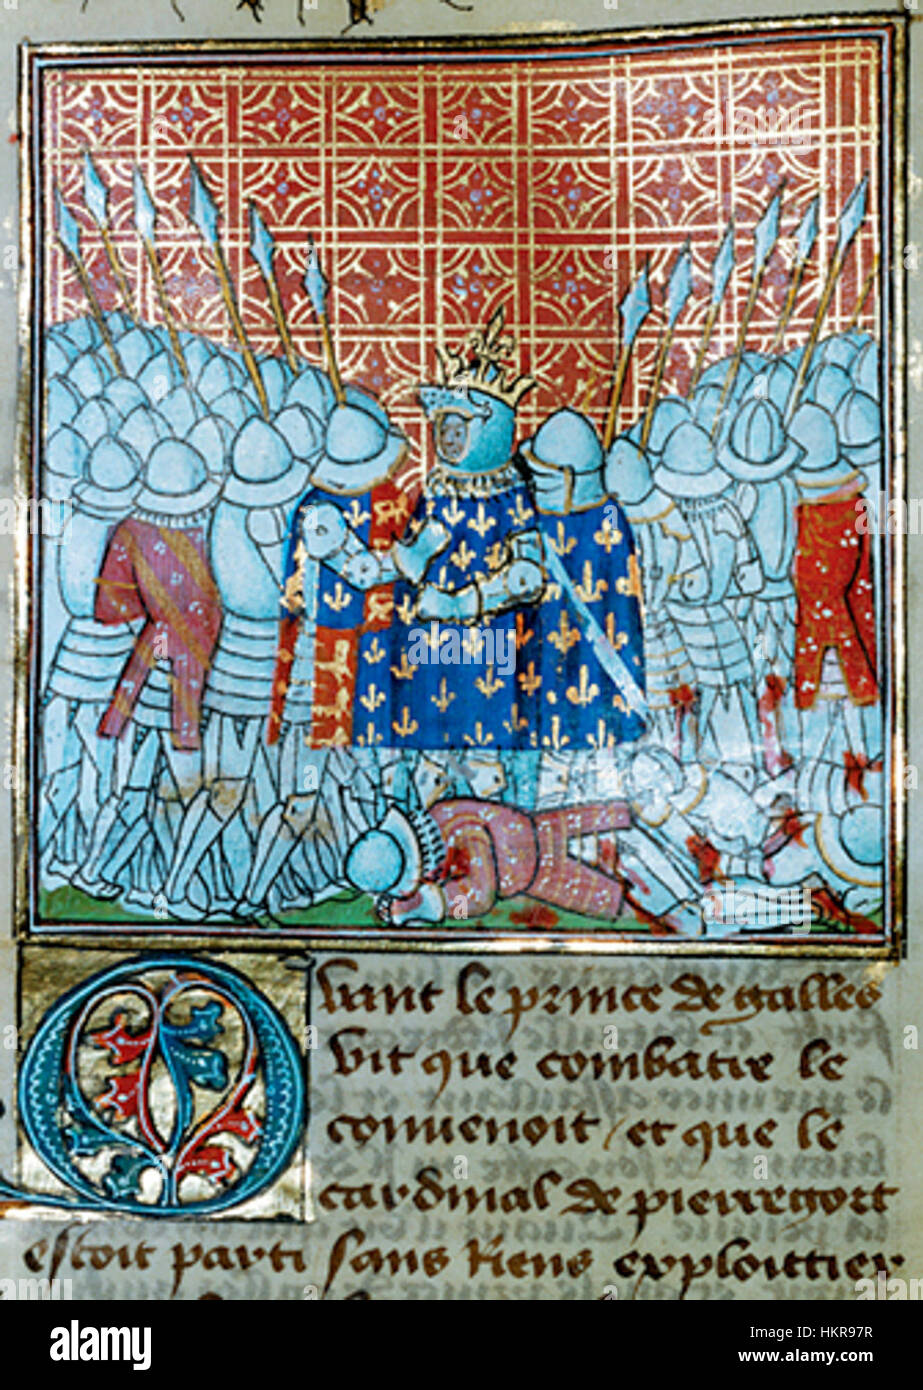 Quant le prince de galles
vit que combatre le
convenoit / et que le
cardinal de pierregort
estoit parti sans riens exploittier
alamy
Image ID: HKR97R
www.alamy.com